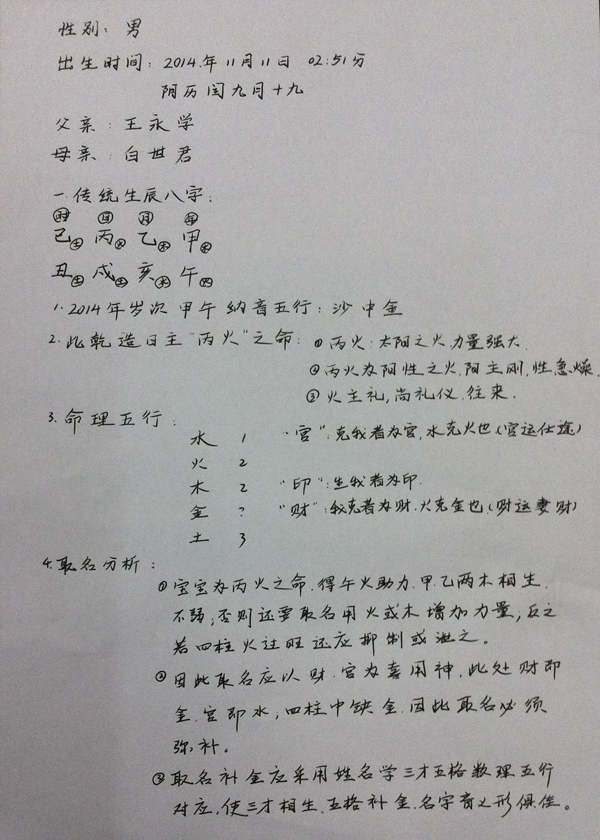 性别：男
出生时间：2014.年11月11日 02:51分
阴历闰九月十九
父亲：王永学
母亲：白世君
一.传统生辰八字：
时 日 月 年
己土 丙火 乙木 甲木
丑土 戌土 亥水 午火
1. 2014年岁次 甲午 纳音五行：沙中金
2. 此乾造日主"丙火"之命：①丙火：太阳之火.力量强大.
②丙火为阳性之火.阳主刚,性急燥.
③火主礼,尚礼仪.往来.
3. 命理五行：
水 1 "官"：克我者为官,水克火也(官运仕途)
火 2
木 2 "印"：生我者为印.
金 ? "财"：我克者为财.火克金也.(财运妻财)
土 3
4. 取名分析：
①宝宝为丙火之命.得午火助力.甲.乙两木相生.
不弱;否则还要取名用火或木增加力量;反之
若四柱火过旺还应抑制或泄之。
②因此取名应以财.官为喜用神.此处财即
金.官即水;四柱中缺金.因此取名必须
弥补。
③取名补金应采用姓名学三才五格数理五行
对应,使三才相生.五格补金.名字音义形俱佳。